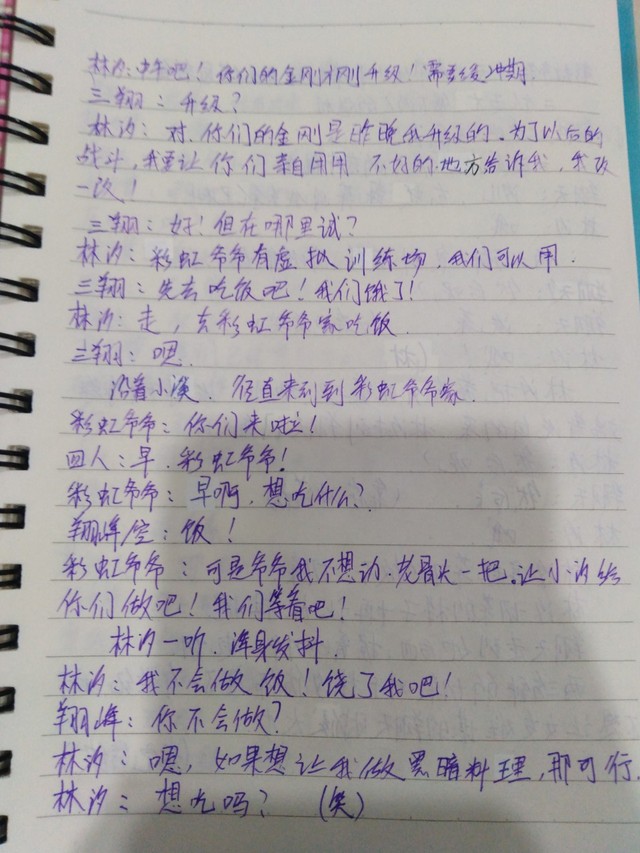 林汐：中午吧！你们的金刚才刚升级！需要缓冲期.
三翔：升级？
林汐：对.你们的金刚是昨晚我升级的.为了以后的
战斗，我要让你们亲自用用 不好的地方告诉我，我改
一改！
三翔：好！但在哪里试？
林汐：彩虹爷爷有虚拟训练场.我们可以用.
三翔：先去吃饭吧！我们饿了！
林汐：走，去彩虹爷爷家吃饭.
三翔：嗯.
沿着小溪.径直来到到彩虹爷爷家.
彩虹爷爷：你们来啦！
四人：早.彩虹爷爷！
彩虹爷爷：早啊.想吃什么？
翔峰/空：饭！
彩虹爷爷：可是爷爷我不想动.老骨头一把.让小汐给
你们做吧！我们等着吧！
林汐一听.浑身发抖.
林汐：我不会做饭！饶了我吧！
翔峰：你不会做？
林汐：嗯，如果想让我做黑暗料理，那可行.
林汐：想吃吗？ （笑）